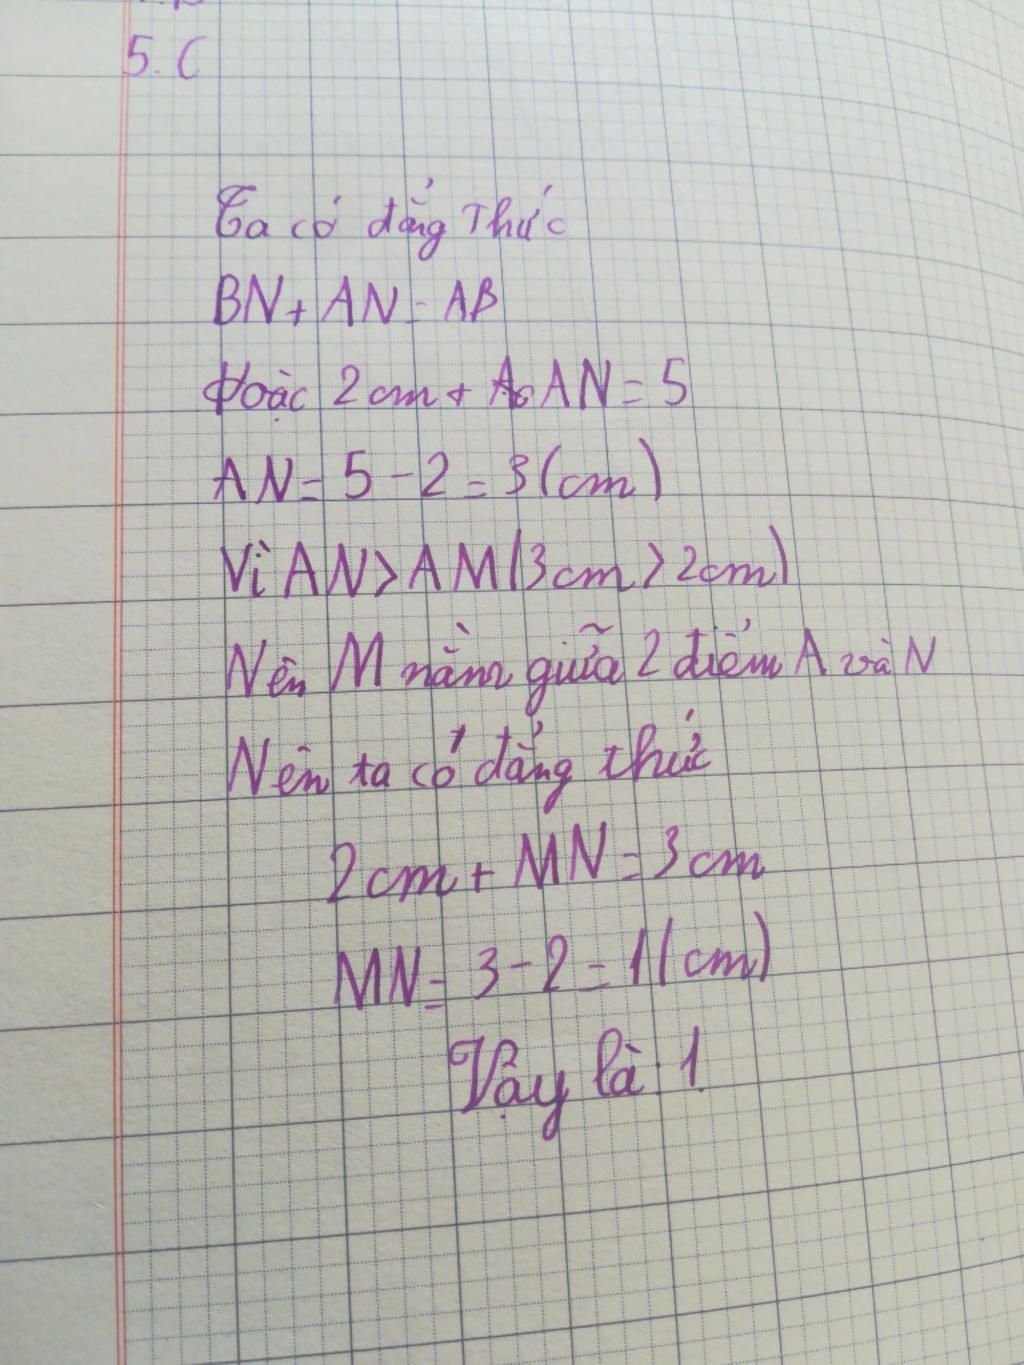 5. C
Ta có đẳng thức
BN + AN = AB
Hoặc 2cm + AN = 5
AN = 5 - 2 = 3 (cm)
Vì AN > AM (3cm > 2cm)
Nên M nằm giữa 2 điểm A và N
Nên ta có đẳng thức
2cm + MN = 3cm
MN = 3 - 2 = 1 (cm)
Vậy là: 1